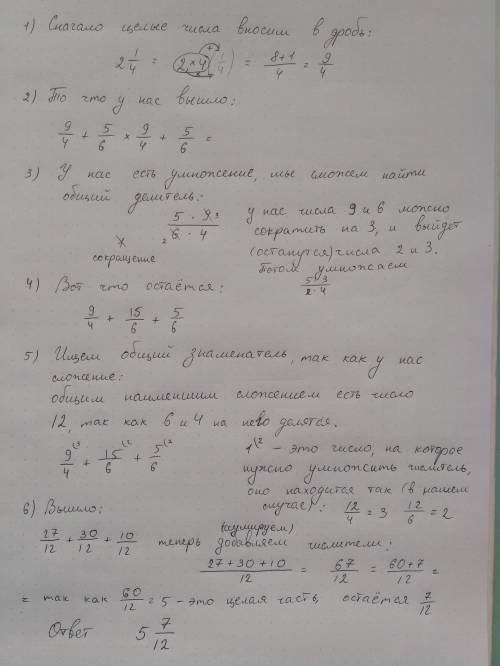 1) Сначало целые числа вносим в дробь:
2 1/4 = 2 × 4 (1/4) = 8+1/4 = 9/4
2) То что у нас вышло:
9/4 + 5/6 × 9/4 + 5/6 =
3) У нас есть умножение, мы сможем найти
общий делитель:
5 · 9 3 / 2 6 · 4
сокращение
у нас числа 9 и 6 можно
сократить на 3, и выйдет
(останутся) числа 2 и 3.
Потом умножаем
5·3/2·4
4) Вот что остаётся:
9/4 + 15/6 + 5/6
5) Ищем общий знаменатель, так как у нас
сложение:
общим наименьшим сложением есть число
12, так как 6 и 4 на него делятся.
9/4 \3 + 15/6 \2 + 5/6 \2
1 \2 - это число, на которое
нужно умножить числитель,
оно находится так (в нашем
случае): 12/4 = 3 12/6 = 2
6) Вышло:
27/12 + 30/12 + 10/12 теперь добавляем числители:
27+30+10/12 = 67/12 = 60+7/12 =
= так как 60/12 = 5 - это целая часть, остаётся 7/12
Ответ 5 7/12